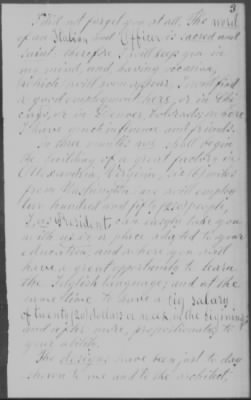 3
I did not forget you at all. The word
of an Italian and Officer is sacred and
Saint. therefore I will keep you in
my mind, and having occasion,
which will soon, I will find
a good employment here, or in Chi-
cago, or in Denver Colorado, where
I have much influence and friends.
In these months will shall begin
the building of a great factory in
Alexandria, Virginia, six (6) miles
from Washington. we will employ
two hundred and fifty people,
I, as President can employ take you
with us in a place adapted to your
education, and where you will
have a great opportunity to learn
the English language, and at the
same time to have a big salary
of twenty (20) dollars a week in the beginning,
and rights more, proportionately to
your ability.
The designs have been just to day
shown to me and to the architect,